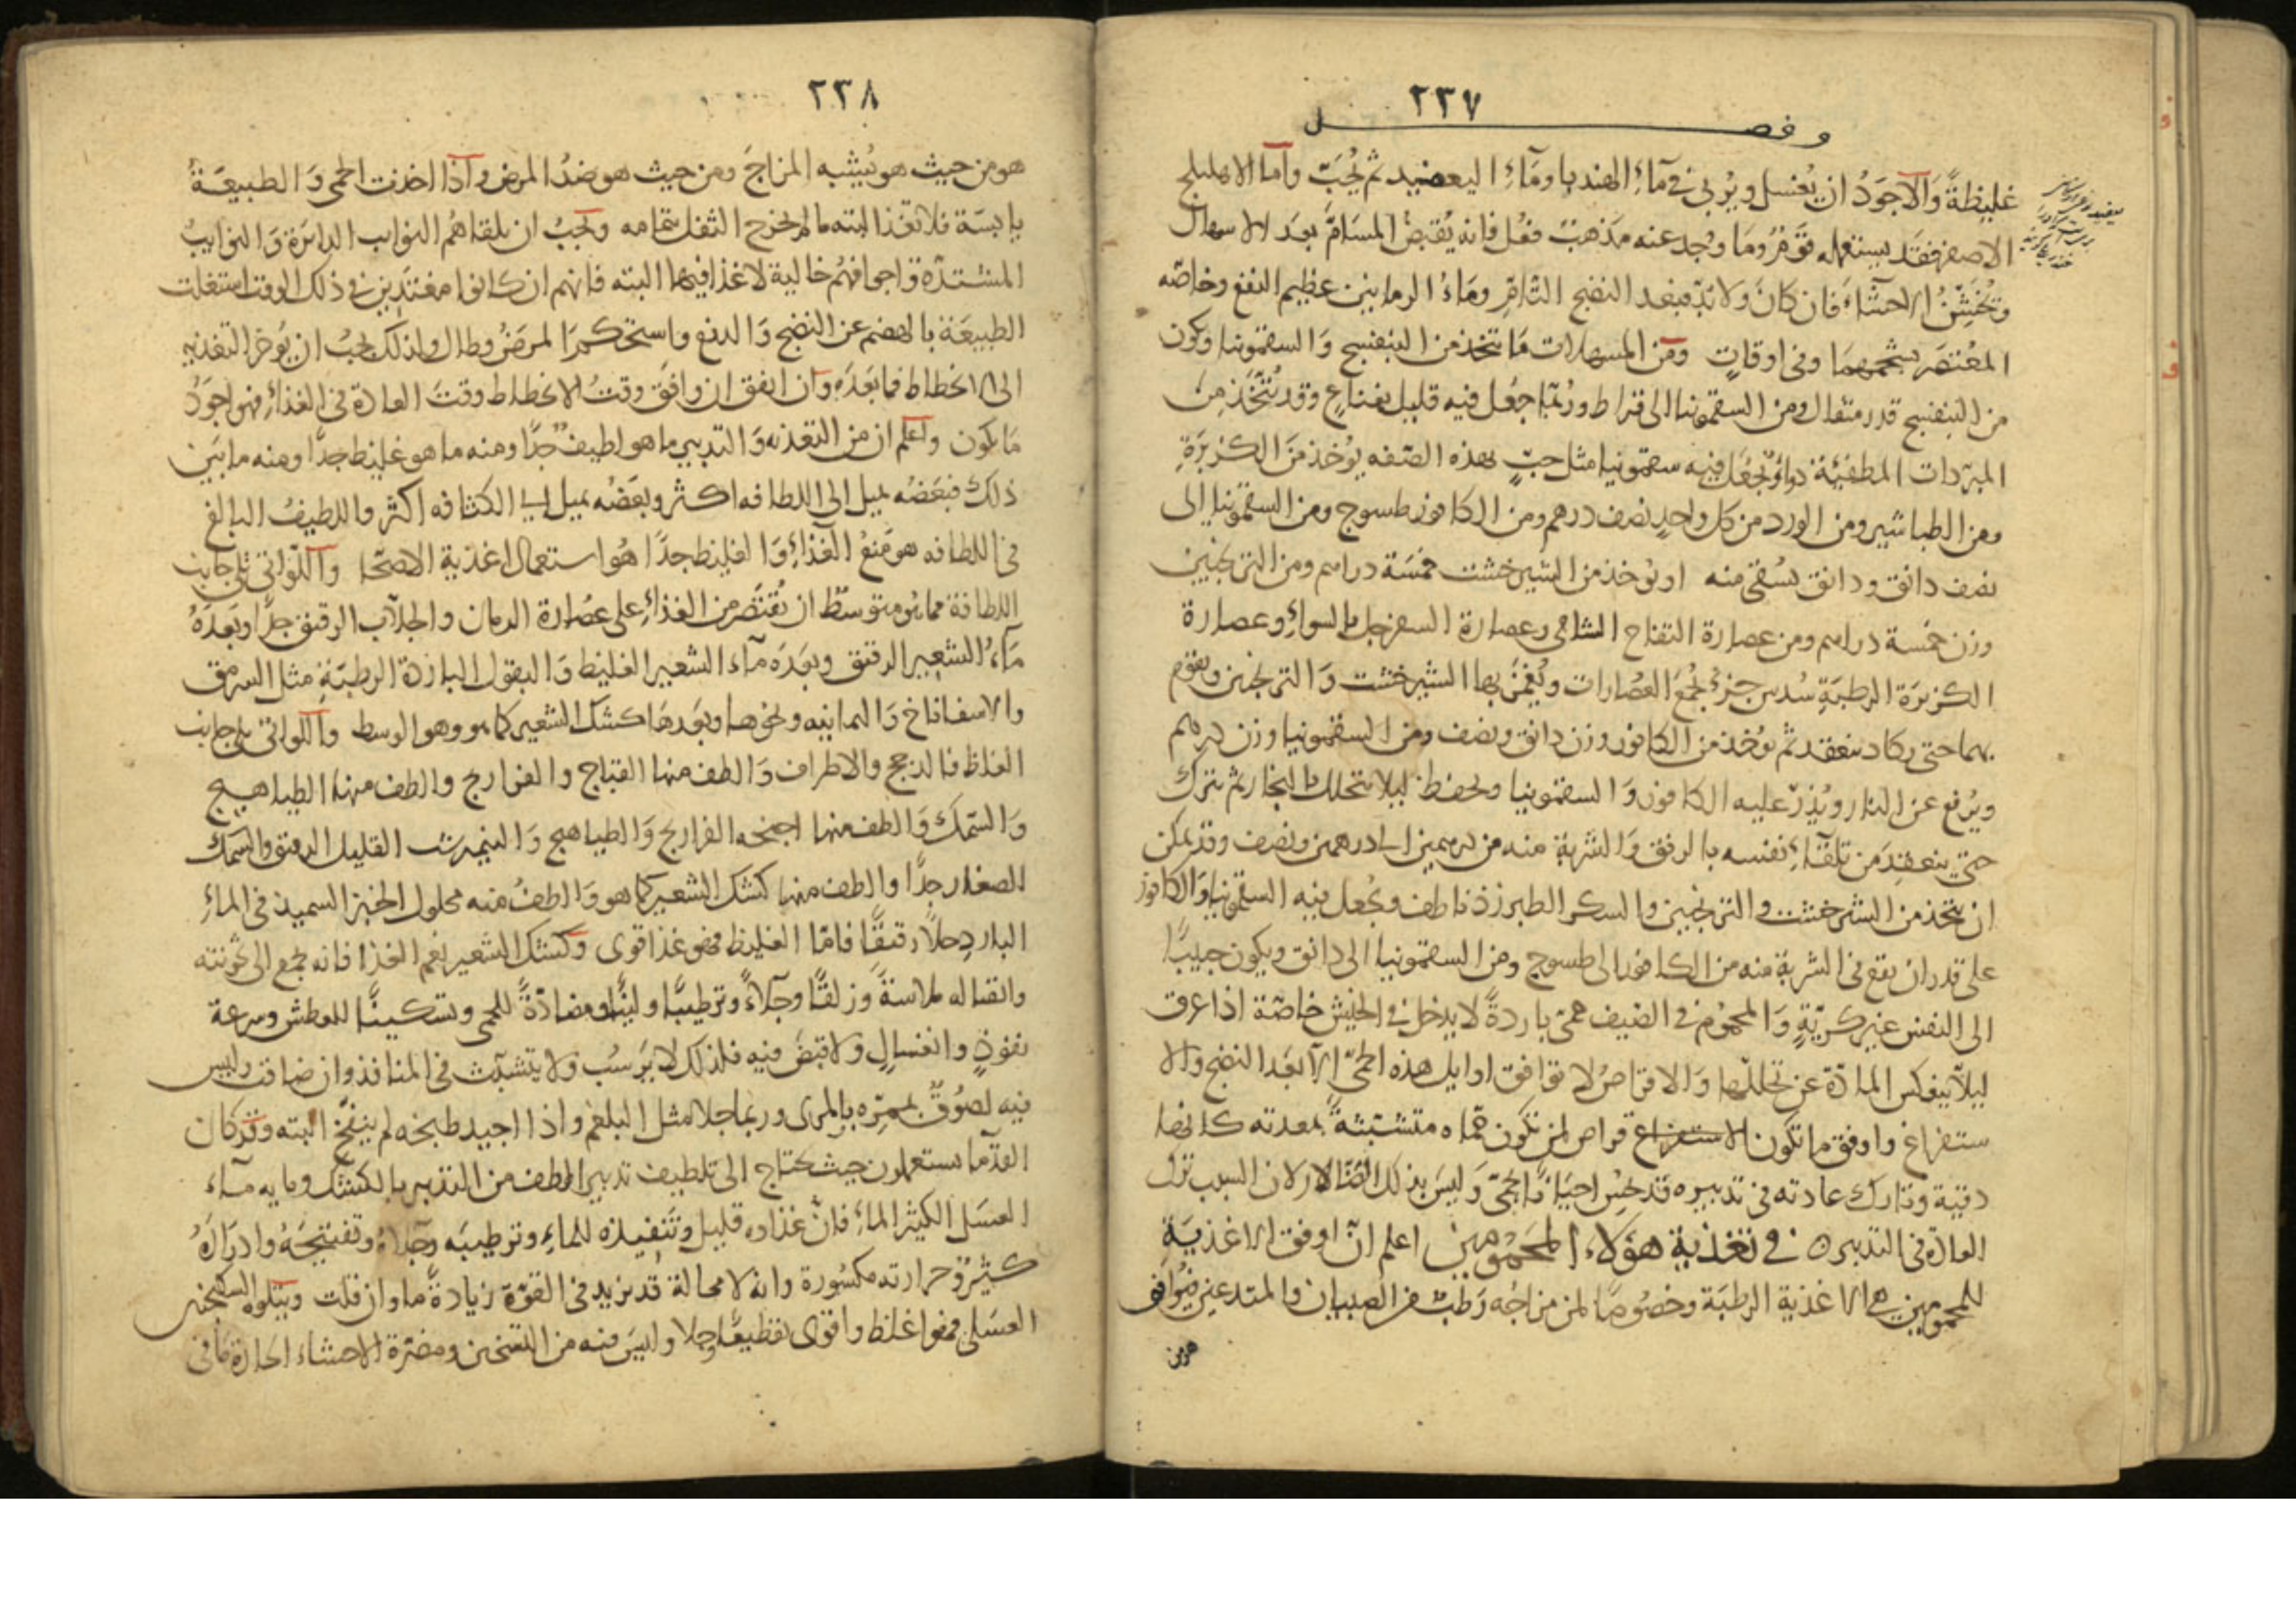 ٢٣٧
وفصل
غليظةً وَالاجوَدُ ان يُغسل ويُربى في مآءِ الهندبا ومَآءِ اليعضيد ثم يُحَبّ وآما الاهليلج
الاصفر فقد يستعمله قوَمٌ ومَا وجُد عنه مَذهبٌ فعُل فانه يُقبض المسَامَّ بعدَ الاسهال
وتُخَشِّنُ الاحشَاءَ فان كانَ ولا بُدّ فبعد النضج التَّامّ ومَاءُ الرمانين عظيم النفع وخاصّه
المعُتصَر بشحمهمَا وفى اوقاتٍ ومَن المسهلات مَا يتخذ من البنفسج وَالسقمونيا ويكون
من البنفسج قدر مثقال ومن السقمونيا الى قيراط ورُبّما جعُل فيه قليل نعناعٍ وقد يُتّخَذ مِن
المبرّدات المطفيَة دوآءٌ يجُعَل فيه سقمونيا مثل حبٍّ بهذه الصّفه يوُخذ مَن الكزبَرَةِ
ومن الطباشير ومن الورد من كل واحدٍ نصف درهم ومن الكافور طسوج ومن السقمونيا الى
نصف دانق ودانق يسُقى منه او يوُخذ من الشير خشت خمسَة دراهم ومن الترنجبين
وزن خمَسة دراهم ومن عصارة التفاح الشامى وعصارة السفرجل بالسواءِ وعصارة
الكزبرَة الرطبَةِ سُدس جزءٌ يجُمعَ العُصارات ويُغمَرُ بها الشير خشت وَالترنجبين ويقوم
بهما حتى يكاد ينعقد ثم يُوُخذ من الكافور وزن دانق ونصف ومن السقمونيا وزن درهم
ويُرفع عن النار ويُذرّ عليه الكافور وَالسقمونيا ويحفظ ليلا يتحلل بالبخار ثم يترك
حتى ينعقِدَ من تلقآءِ نفسه بالرفق وَالشربة منه من درهمين الى درهمين ونصف وقد يمكن
ان يتخذ من الشير خشت والترنجبين والسكر الطبرزذ ناطف ويجُعل فيه السقمونيا وَالكافور
على قدر ان يقع فى الشربة منه من الكافور الى طسوج ومن السقمونيا الى دانق ويكون حبيبًا
الى النفس غير كريهٍ وَالمحموم فى الصَيف حمىّ باردةً لا يدخل فى الخيش خاصّة اذا عرق
ليلاّ ينعكس المادّة عن تحللّها وَالاقراصُ لا توافق اوايل هذه الحمىّ الآ بعَد النضج والا
ستفراغ واوفق ما تكون الاقراص لمن تكون حمّاه متشبّثةً بمعدته كانها
دقية وتارك عادته فى تدبيره قد يحُس احيَانًا بحمىّ وَليسَ بذلك الضَّار لان السبب ترك
العادة فى التدبير ه فى تغذية هؤلاء المحَمُومين اعلم انّ اوفق الاغذيَةِ
للمحمومين هى الاغذية الرطبَة وخصُوصًا لمن مزاجُه رَطبٌ من الصبيان والمتدعين فيُوافق
هو من
٢٣٨
هو من حيث هو يُشْبِه المزاجَ ومن حيث هو ضدُ المرض وآذا اخذت الحمى وَالطبيعَةُ
يابسَة فلا تغذ البته ما لم يخرج الثفل بتمامه ويجَبُ ان يلقاهُم النوايب الدايرَة وَالنوايبُ
المشتدّة واجوافهُم خالية لا غذا فيها البته فانهم ان كانوا مغتذِين فى ذلك الوقت اشتغلت
الطبيعَة بالهضم عن النضج وَالدفع واستحكمَ المرضُ وطال ولذلك يجبُ ان يؤخر التغذيه
الى الانحطاط فما بعَدَه وآن اتفق ان وافَق وقتُ الانحطاط وقتَ العادة فى الغذآءِ فهو اجوَدُ
مَا يكون وآعلم ان من التغذيه وَالتدبير ما هو لطيف جدًّا ومنه ما هو غليظ جدًّا ومنه ما بَين
ذلك فبَعضُه يميل الى اللطافه اكثر وبعَضُه يميل الى الكثافه اكثر واللطيفُ البالغ
فى اللطافه هو مَنعُ الغذآءِ وَالغليظ جدًّا هُو استعمال اغذية الاصحّا وآللّواتى تلى جانب
اللطافة مما هو متوسّط ان يُقتصَر من الغذآءِ على عصُارة الرمان والجلاّب الرقيق جدًّا وبَعدَهُ
مَاءُ الشعير الرقيق وبعدَه مآء الشعير الغليظ وَالبقول الباردة الرطبَةِ مثل السرمق
والاسفاناخ وَاليمانيه ونحوها وبعَدهَا كشك الشعير كما هو وهو الوسط وآللّواتى تلى جانب
الغلظ فالدجج والاطراف وَالطف منها القباج والفراريج والطف منها الطياهيج
وَالسّمك وَالطف منها اجنحه الفراريج وَالطياهيج وَالنيمرشت القليل الرقيق والسمك
الصغار جدًّا والطف منها كشك الشعير كما هو وَالطفُ منه محلول الخبز السميذ فى الماءِ
البارد حلاًّ رقيقًا فامّا الغليظ فهو غذا قوى وكشك الشعير نعم الغذا فانه يجمع الى ثخونته
واتصاله ملاسةً وزلقًا وجَلآءً وترطيبًا ولينًا ومضادّةً للحمى وتسكينًا للعطش وسرعة
نفوذٍ وانغسالٍ ولا قبضَ فيه فلذلك لا يَرسُب وَلا يتشبّث فى المنافذ وان ضاقت وليس
فيه لصُوقٌ بممرّه بالمرى وربما جلا مثل البلغم واذا اجيد طبخه لم ينفخ البته وقد كان
القدّما يستعملون حيث يحتاج الى تلطيف تدبير الطف من التدبير بالكشك ومايه مآء
العسَل الكثير الماءِ فانّ غذاه قليل وتَنفيذه للماءِ وترطيبَه وجَلآءه وتفتيحَهُ وادرَارَهُ
كثيرٌ وحرارته مكسُورة وانه لا محالة قد يزيد فى القوّة زيادةً ما وان قلت ويتلوه السكنجبين
العسَلى فهو اغلظ واقوى تقطيعًا وجلا وليسَ فيه من التسخين ومضرّة الاحشاء الحارة مَا فى